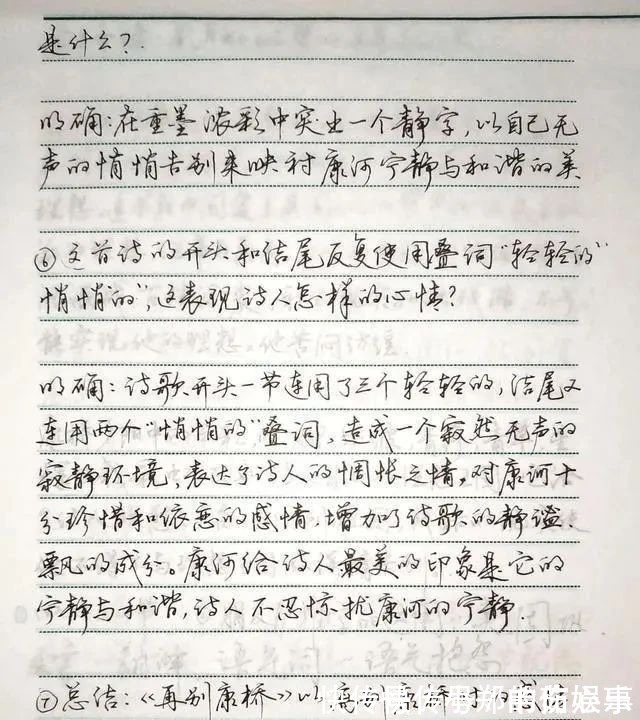 是什么？
明确：在重墨浓彩中突出一个静字，以自己无
声的悄悄告别来映衬康河宁静与和谐的美
⑥这首诗的开头和结尾反复使用叠词“轻轻的”
悄悄的”，这表现诗人怎样的心情？
明确：诗歌开头一节连用了三个轻轻的，结尾又
连用两个“悄悄的”叠词，造成一个寂然无声的
寂静环境，表达了诗人的惆怅之情，对康河十
分珍惜和依恋的感情，增加了诗歌的静谧
飘的成分。康河给诗人最美的印象是它的
宁静与和谐，诗人不忍惊扰康河的宁静．
⑦总结：《再别康桥》以离别康桥时的感